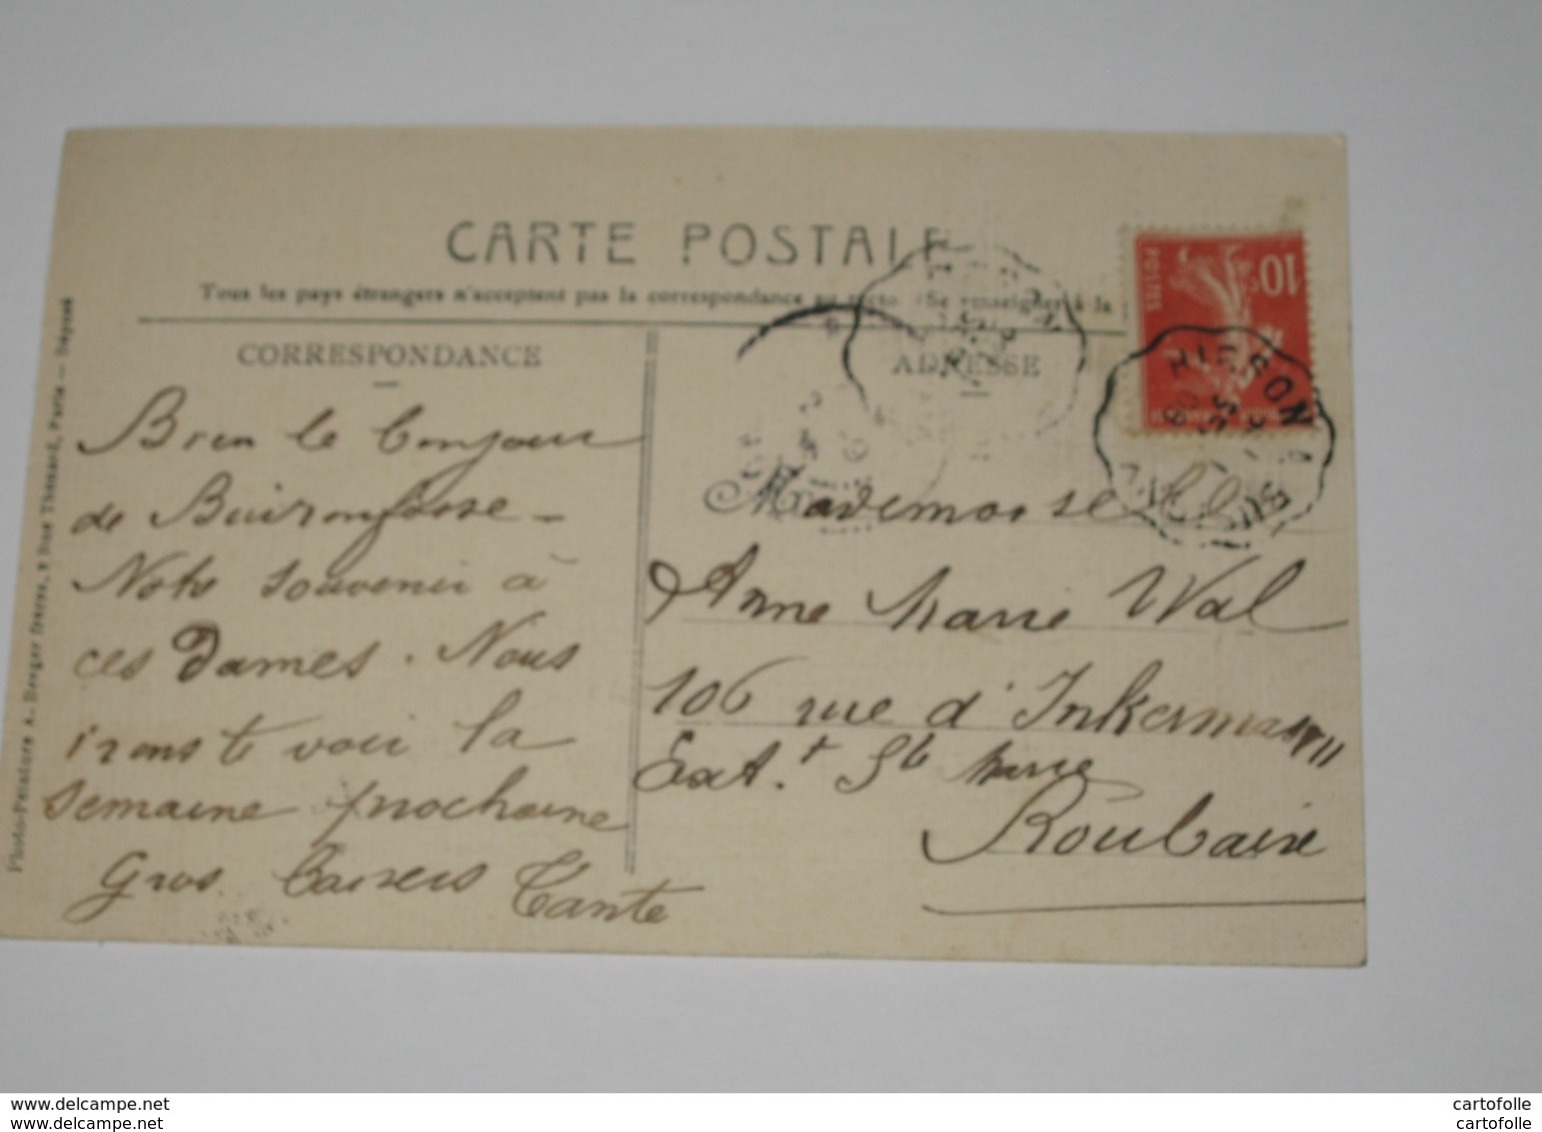 CARTE POSTALE
Tous les pays étrangers n'acceptent pas la correspondance au recto. (Se renseigner à la
CORRESPONDANCE
ADRESSE
Bien le bonjour
de Buironfosse -
Notre souvenir à
ces Dames. Nous
irons te voir la
semaine prochaine
Gros baisers Tante
Mademoiselle
Anne Marie Wal
106 rue d'Inkermann
Ext.t Ste Marie
Roubaix
POSTES
10c
HIRSON
Photo-Peinture A. Berger frères, 9 Rue Thénard, Paris - Déposé
www.delcampe.net
cartofolle
www.delcampe.net
cartofolle